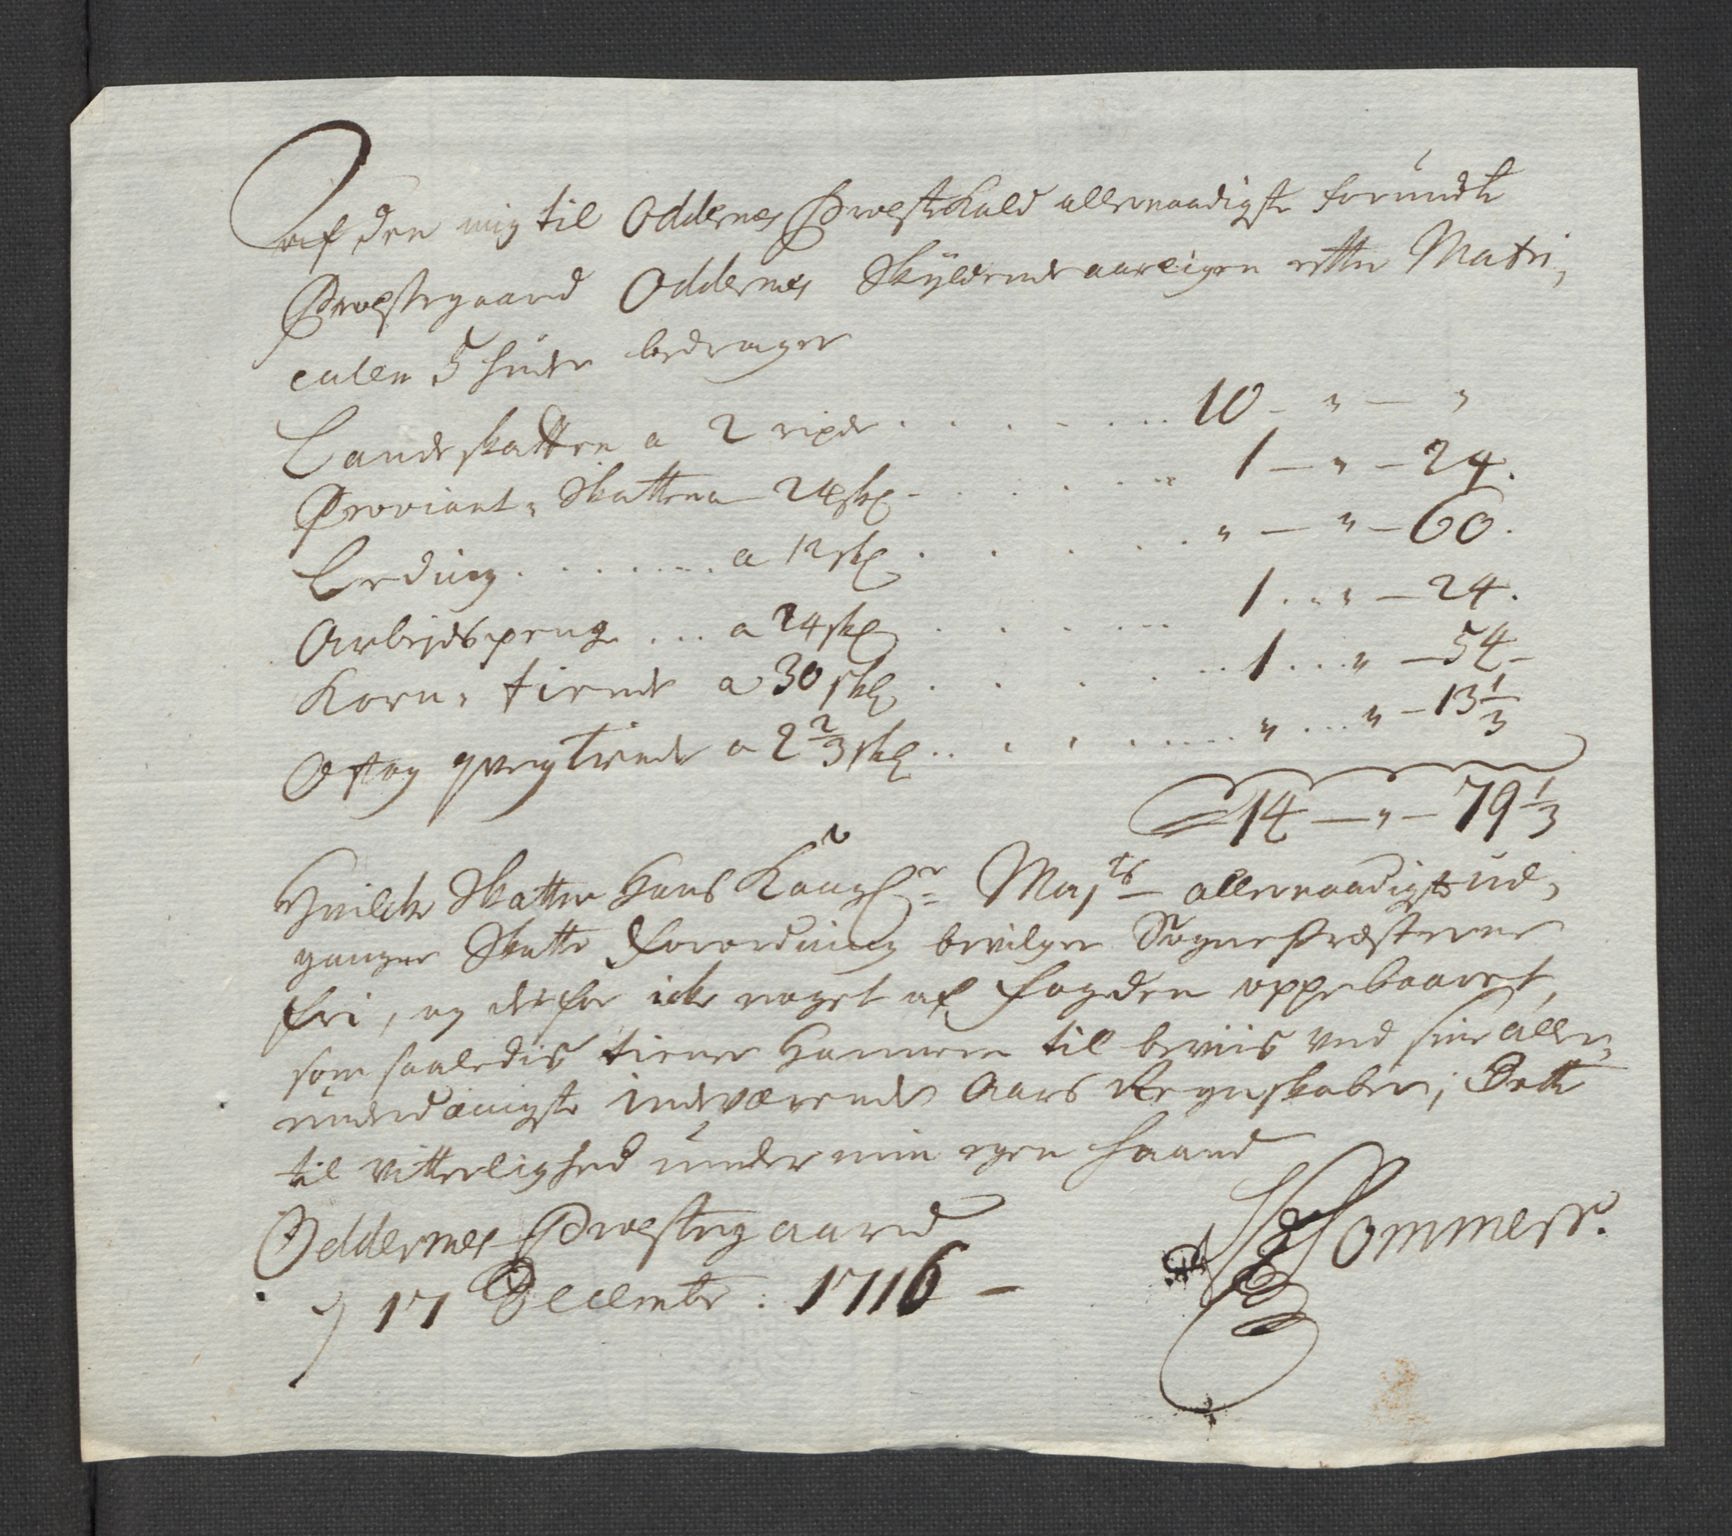 af den mig til Oddernes Præstekald allernaadigste forundte
Præstegaard Oddernes Skyldende aarligen efter Matri,
culen 5 huder bedrager
Landskatten a 2 rixdr . . . . . . . 10 - " - "
Proviant, Skatten a 24 skl - . . . . . . 1 - " - 24.
Leding . . . . . . . a 12 skl . . . . . . " - " - 60.
Arbeidspeng . . . a 24 skl . . . . . . 1 . . " - 24.
Korn, tiende a 30 skl . . . . . . 1 . . . " - 54 -
Ost og qvegtiende a 2 2/3 skl . . . . . . . " . . . " - 13 1/3
14 - " - 79 1/3
Hvilche Skatter Hans Kongl. Majts allernaadigst ud,
gangne Skatte Forordning bevilger Sognepræsterne
fri, og derfor icke noget af fogden oppebaaret,
som saaledis tiener Hannem til beviis ved sine aller,
underdanigste indeværende Aars Regnskaber; Dette
til vitterlighed under min egen haand
Oddernes Præstegaard
d 17 Decembr: 1716 -
Sommerr.